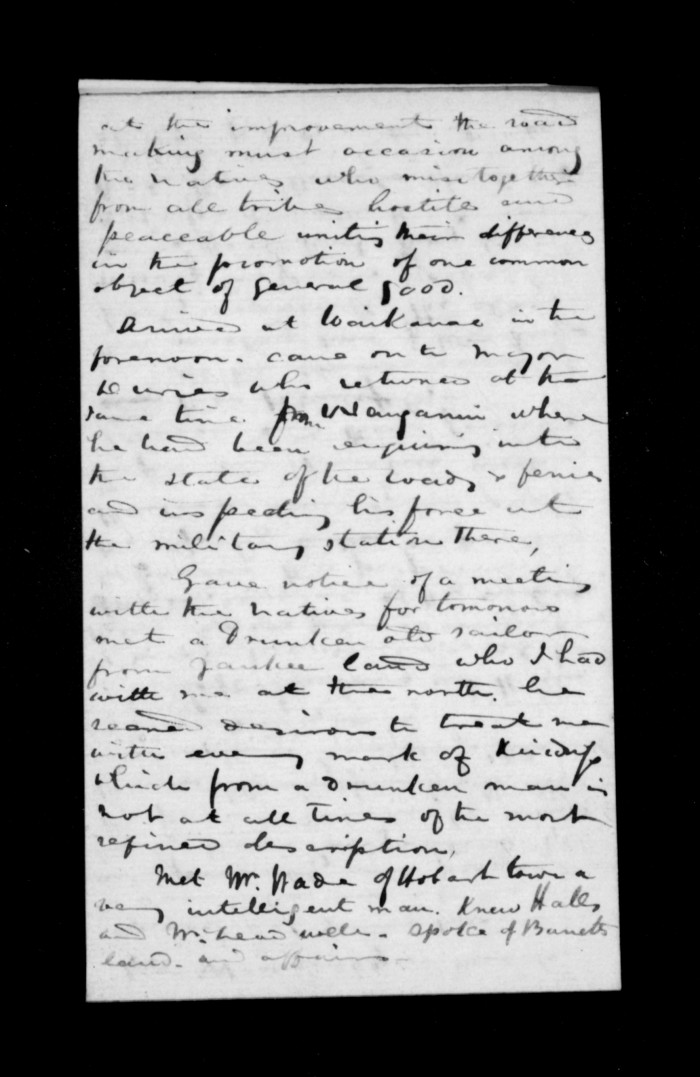 at the improvement the road
making must occasion among
the natives who mix together
from all tribes hostile and
peaceable uniting their differences
in the promotion of one common
object of general good.
Arrived at Waikanae in the
forenoon. came on to Major
Durie's who returned at the
same time. from Wanganui where
he had been enquiring into
the state of the roads & ferries
and inspecting his force at
the military station there,
Gave notice of a meeting
with the natives for tomorrow
met a Drunken old sailor
from Yankee land who I had
with me at the north. he
seemed desirous to treat me
with every mark of kindness
which from a drunken man is
not at all times of the most
refined description,
Met Mr. Wade of Hobart town a
very intelligent man. Knew Halls
and well. spoke of Barretts
land. and affairs.